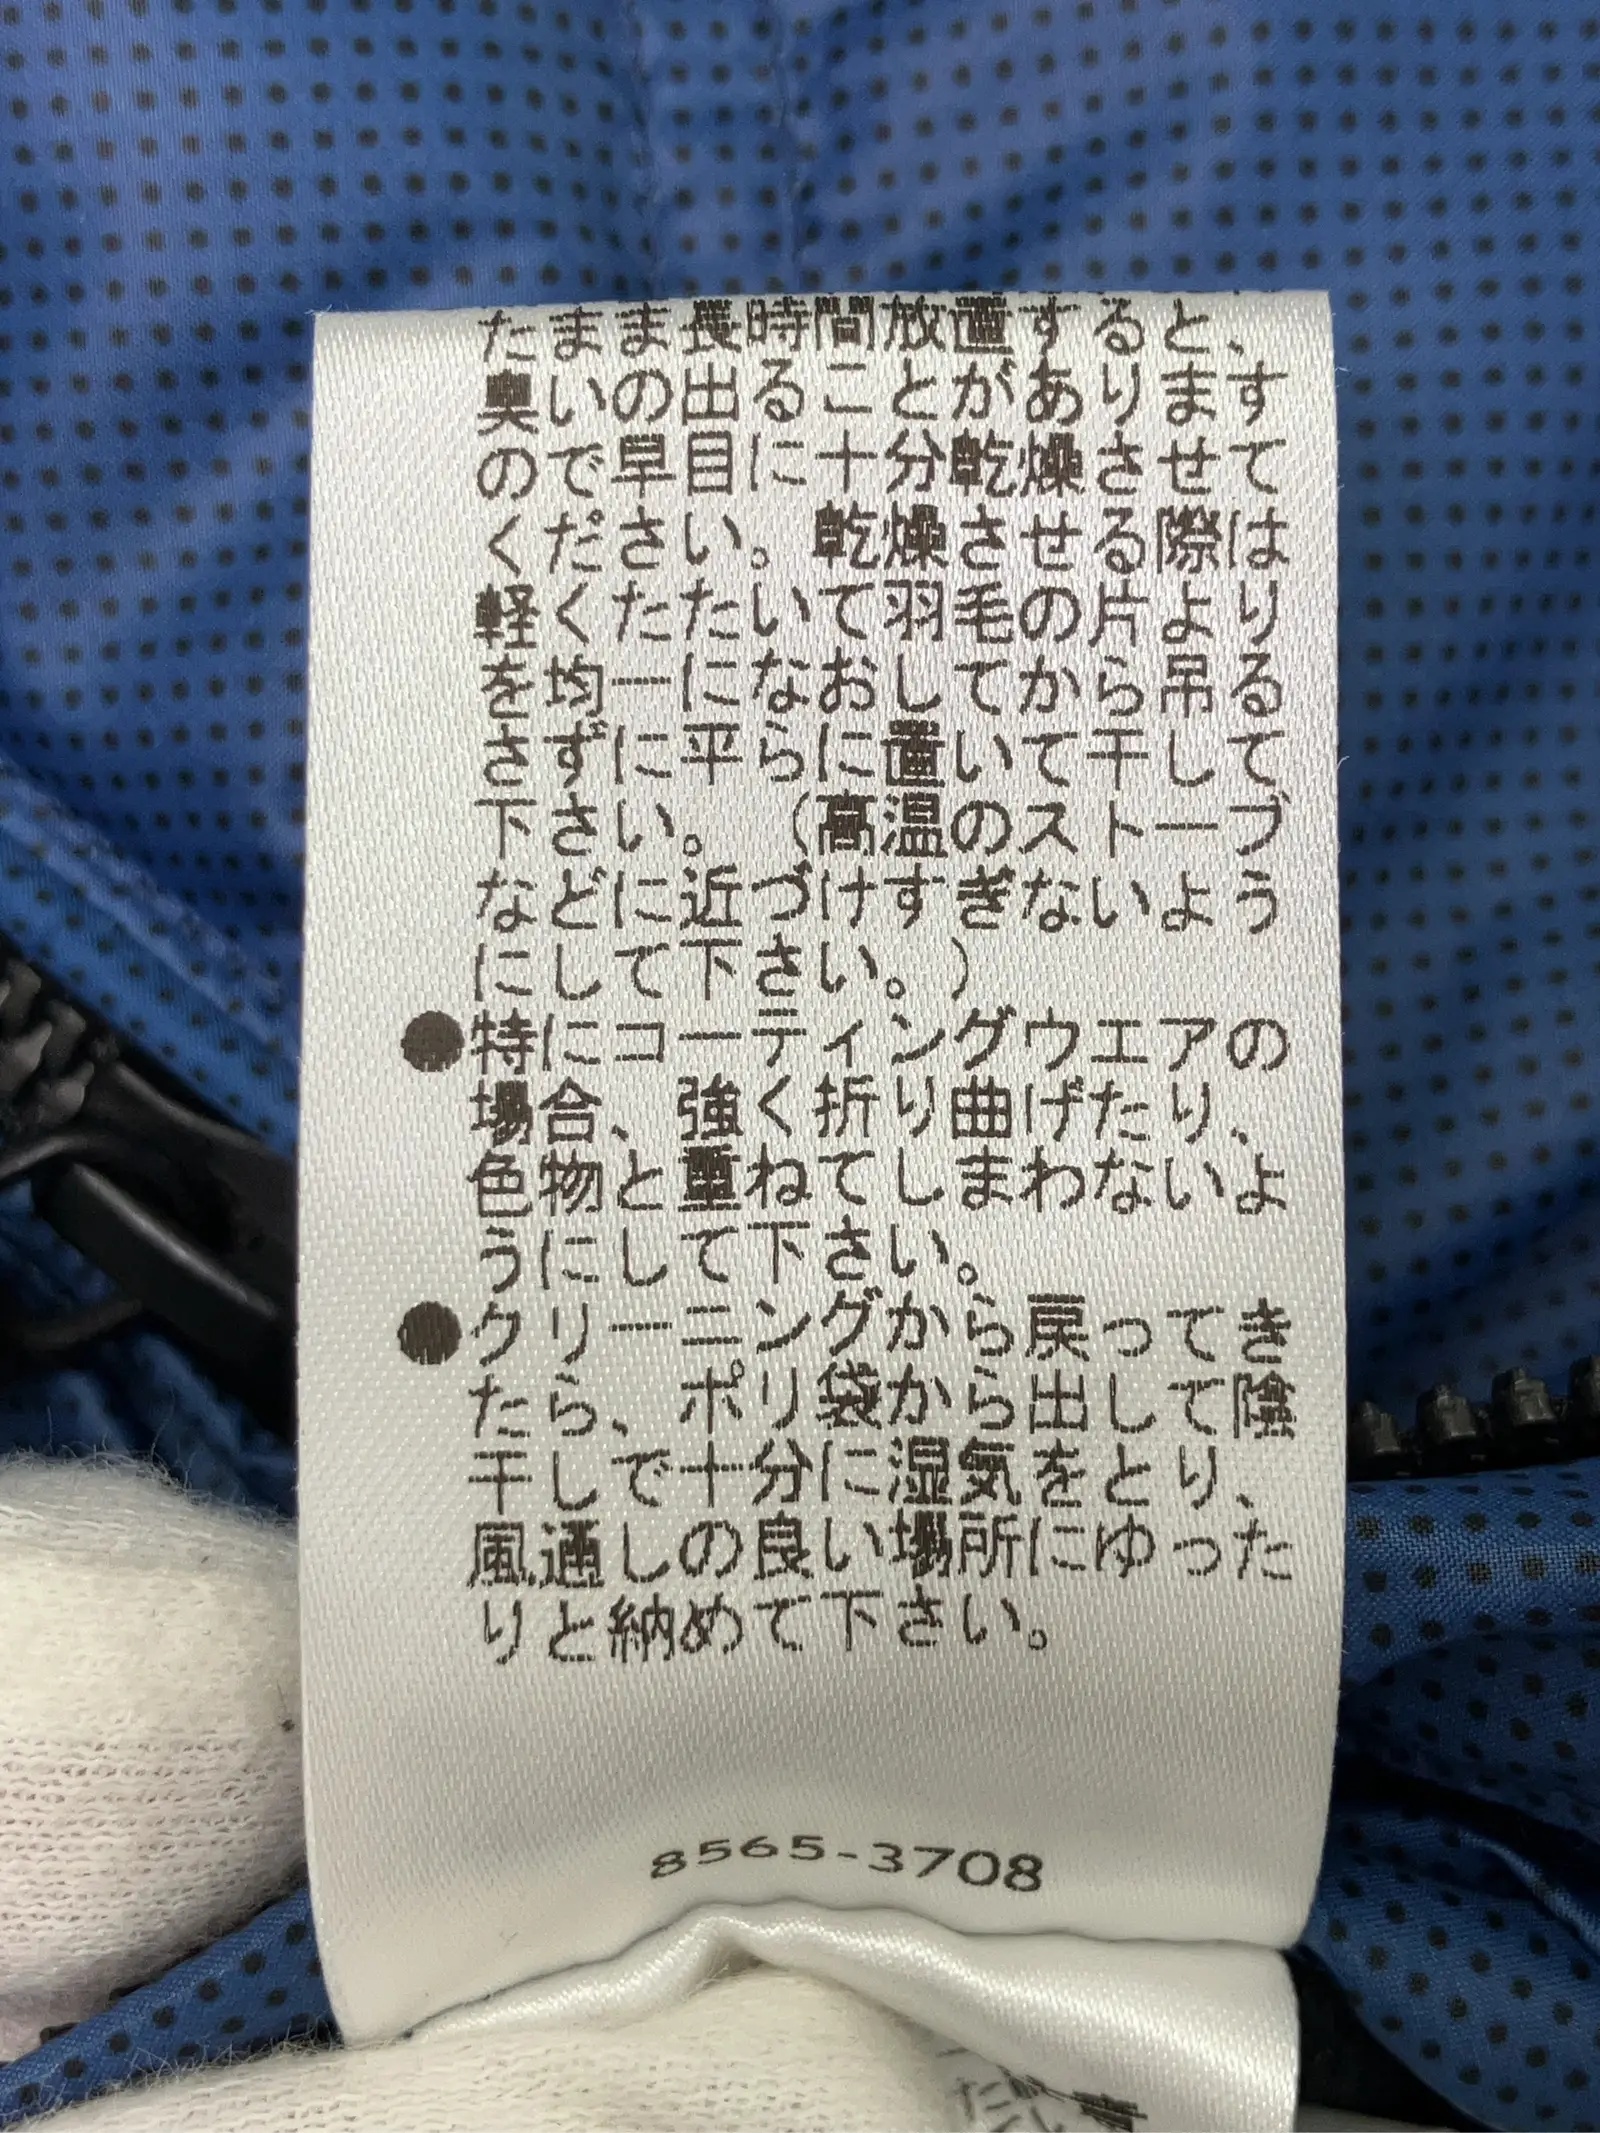 たまま長時間放置すると、
臭いの出ることがあります
ので早目に十分乾燥させて
ください。乾燥させる際は
軽くたたいて羽毛の片より
を均一になおしてから吊る
さずに平らに置いて干して
下さい。（高温のストーブ
などに近づけすぎないよう
にして下さい。）
●特にコーティングウエアの
場合、強く折り曲げたり、
色物と重ねてしまわないよ
うにして下さい。
●クリーニングから戻ってき
たら、ポリ袋から出して陰
干しで十分に湿気をとり、
風通しの良い場所にゆった
りと納めて下さい。
8565-3708